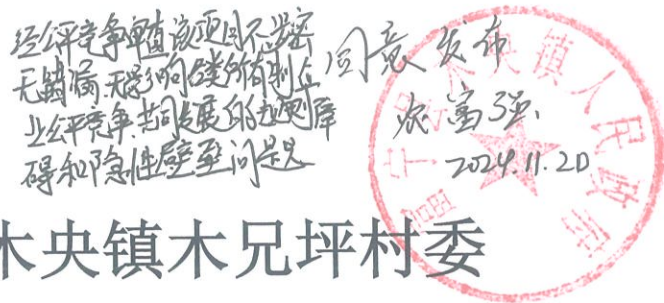 经公平竞争审查该项目不涉密
无错漏、无影响各类所有制企
业公平竞争、共同发展的法规障
碍和隐性壁垒问题
同意发布
富强
2024.11.20
富宁县木央镇人民政府
木央镇木兄坪村委